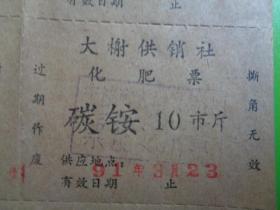 有效日期 止
大榭供销社
化肥票
碳铵 10市斤
过期作废
撕角无效
供应地点：
91年3月23
有效日期 止